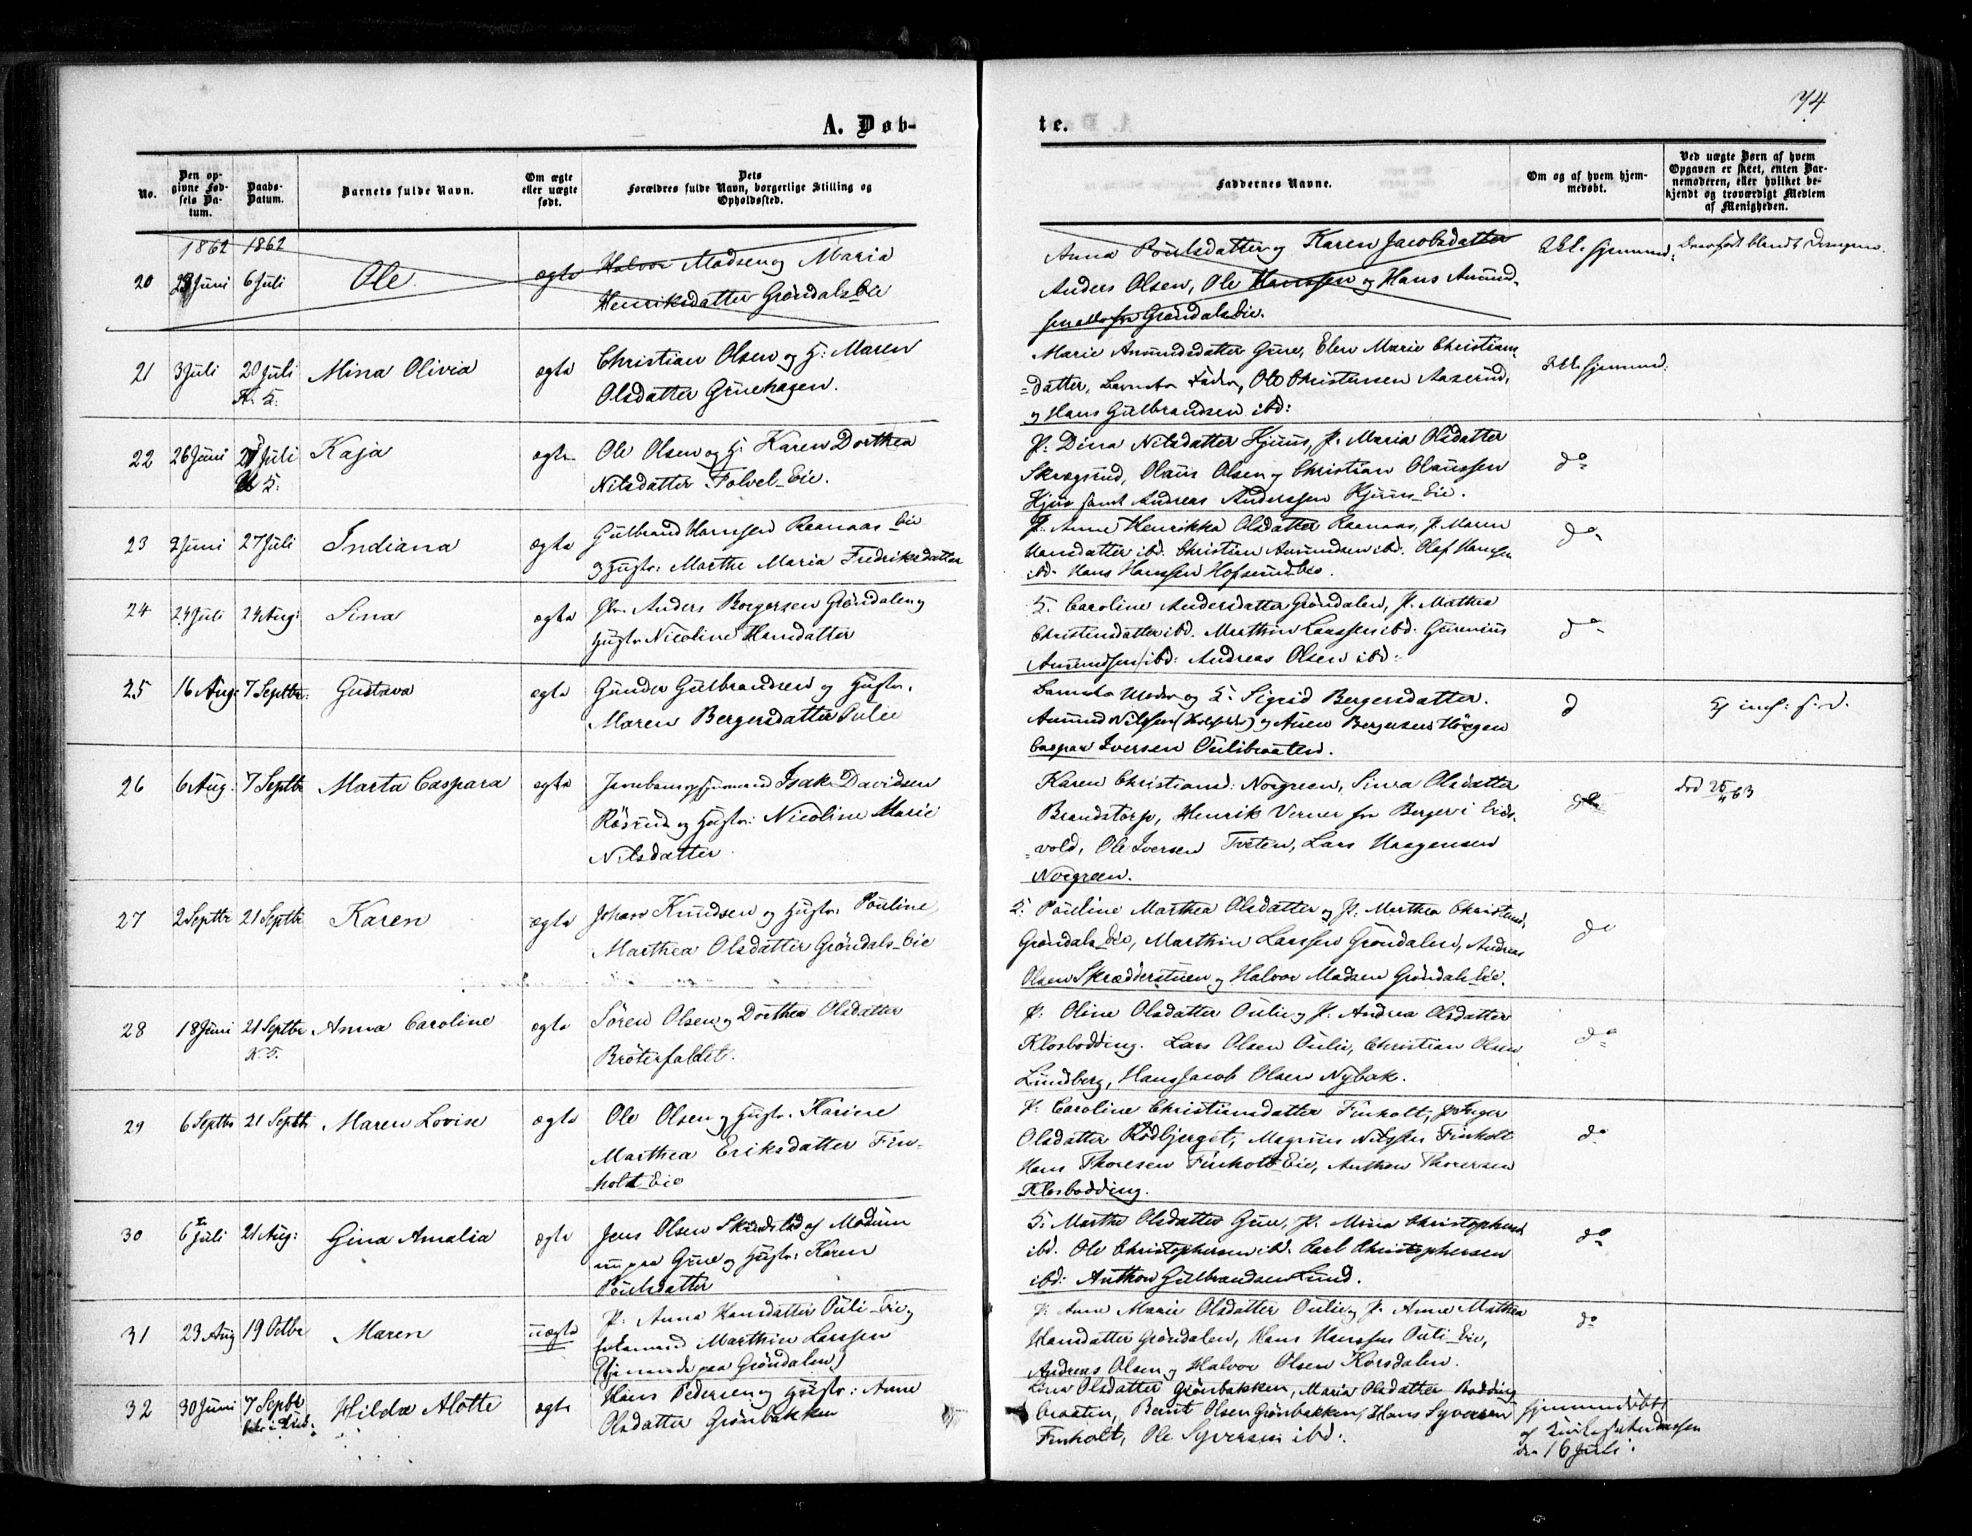 74
A. Døb-
te.
No.
Den opgivne Fødsels Datum.
Daabs-Datum.
Barnets fulde Navn.
Om ægte eller uægte født.
Dets Forældres fulde Navn, borgerlige Stilling og Opholdssted.
Faddernes Navne.
Om og af hvem hjemmedøbt.
Ved uægte Børn af hvem Opgaven er skeet, enten Barnemoderen, eller hvilket bekjendt og troværdigt Medlem af Menigheden.
1862 1862
20 Juni 6 Juli Ole ægte Halvor Madsen og Maria
Henriksdatter Grøndals Eie
Anna Poulsdatter og Karen Jacobsdatter
Anders Olsen, Ole Hanssen og Hans Amund-
Grøndals Eie.
21 3 Juli 20 Juli Mina Olivia ægte Christian Olsen og H: Maren
Olsdatter Gruehagen.
Marie Amundsdatter Grue, Elen Marie Christians-
datter, Barnets Fader, Ole Christensen Aaserud,
og Hans Gulbrandsen ibd:
22 26 Juni 27 Juli Kaja ægte Ole Olsen og H: Karen Dorthea
Nilsdatter Tolvel Eie.
P: Dina Nilsdatter Hjuus, P. Maria Olsdatter
Skrægsrud, Olaus Olsen og Christian Olaussen
Hjus samt Andreas Anderssen Hjuus Eie.
do
23 2 Juni 27 Juli Indiana ægte Gulbrand Hanssen Raanaas Eie
og Hustr: Marthe Maria Fredriksdatter
P. Anne Henrikka Olsdatter Raanaas, P. Maren
Hansdatter ibd. Christian Amundsen ibd. Olaf Hanssen
ibd. Hans Hanssen Hofsrud Eie.
do
24 24 Juli 24 Aug: Lina ægte Anders Borgersen Grøndalen og
Hustr. Nicoline Hansdatter
Caroline Andersdatter Grøndalen, P. Mathea
Christensdatter ibd. Marthin Larssen ibd. Gurenius
Amundsen ibd: Andreas Olsen ibd:
do
25 16 Aug: 7 Septbr. Gustava ægte Gunder Gulbrandsen og Hustr.
Maren Bergersdatter Julie
Barnets Moder og Sigrid Bergersdatter.
Amund Nilssen og Anen Bergersen Hougen
Caspar Iversen Oulibraaten.
do
26 6 Aug: 7 Septbr Marta Caspara ægte Isak Davidsen
Røsrud og Hustr: Nicoline Marie
Nilsdatter.
Karen Christians: Norgreen, Sina Olsdatter
Brandstorp, Henrik Verner fra Berger i Eids-
vold, Ole Iversen Tveten, Lars Haagensen
Norgreen.
do
død 25/4 63
27 2 Septbr 21 Septbr Karen ægte Johan Knudsen og Hustr: Pouline
Marthea Olsdatter Grøndals Eie
Pouline Marthea Olsdatter og P. Marthea Christens.
Grøndals Eie, Marthin Larssen Grøndalen, Andreas
Olsen Skrædderstuen og Halvor Madsen Grøndals Eie.
do
28 18 Juni 21 Septbr Anna Caroline ægte Søren Olsen og Dorthea Olsdatter
Brøterfaldet.
P. Oline Olsdatter Oulie og P. Andrea Olsdatter
Klosbodding. Lars Olsen Oulie, Christian Olsen
Lundberg, Hans Jacob Olsen Nybak.
do
29 6 Septbr 21 Septbr Maren Lovise ægte Ole Olsen og Hustr. Karine
Marthea Eriksdatter Fin-
holt Eie
P: Caroline Christiansdatter Finholt, P. Inger
Olsdatter Rødbjerget, Magnus Nilssen Finholt
Hans Thoresen Finholt Eie, Anthon Thoresen
Klosbodding.
do
30 6 Juli 21 Aug: Gina Amalia ægte Jens Olsen Skudstad af Modum
nu paa Grue og Hustr: Karen
Poulsdatter
Marthe Olsdatter Grue, P. Mina Christophers.
ibd. Ole Christophersen ibd. Carl Christophersen
ibd: Anthon Gulbrandsen Lund.
do
31 23 Aug 19 Octbr Maren uægte P: Anna Hansdatter Ouli Eie og
Marthin Larssen
(tjenende paa Grøndalen)
P. Anne Marie Olsdatter Oulie og P. Anne Mathea
Hansdatter Grøndalen, Hans Hanssen Ouli Eie,
Andreas Olsen og Halvor Olsen Korsdalen.
do
32 30 Juni 7 Septbr Hilda Alotte ægte Hans Pedersen og Hustr: Anne
Olsdatter Grønbakken
Lina Olsdatter Grønbakken, Maria Olsdatter Bodding
braaten, Bernt Olsen Grønbakken, Hans Syversen
Finholt, Ole Syversen ibd.
hjemmedøbt
den 16 Juli.